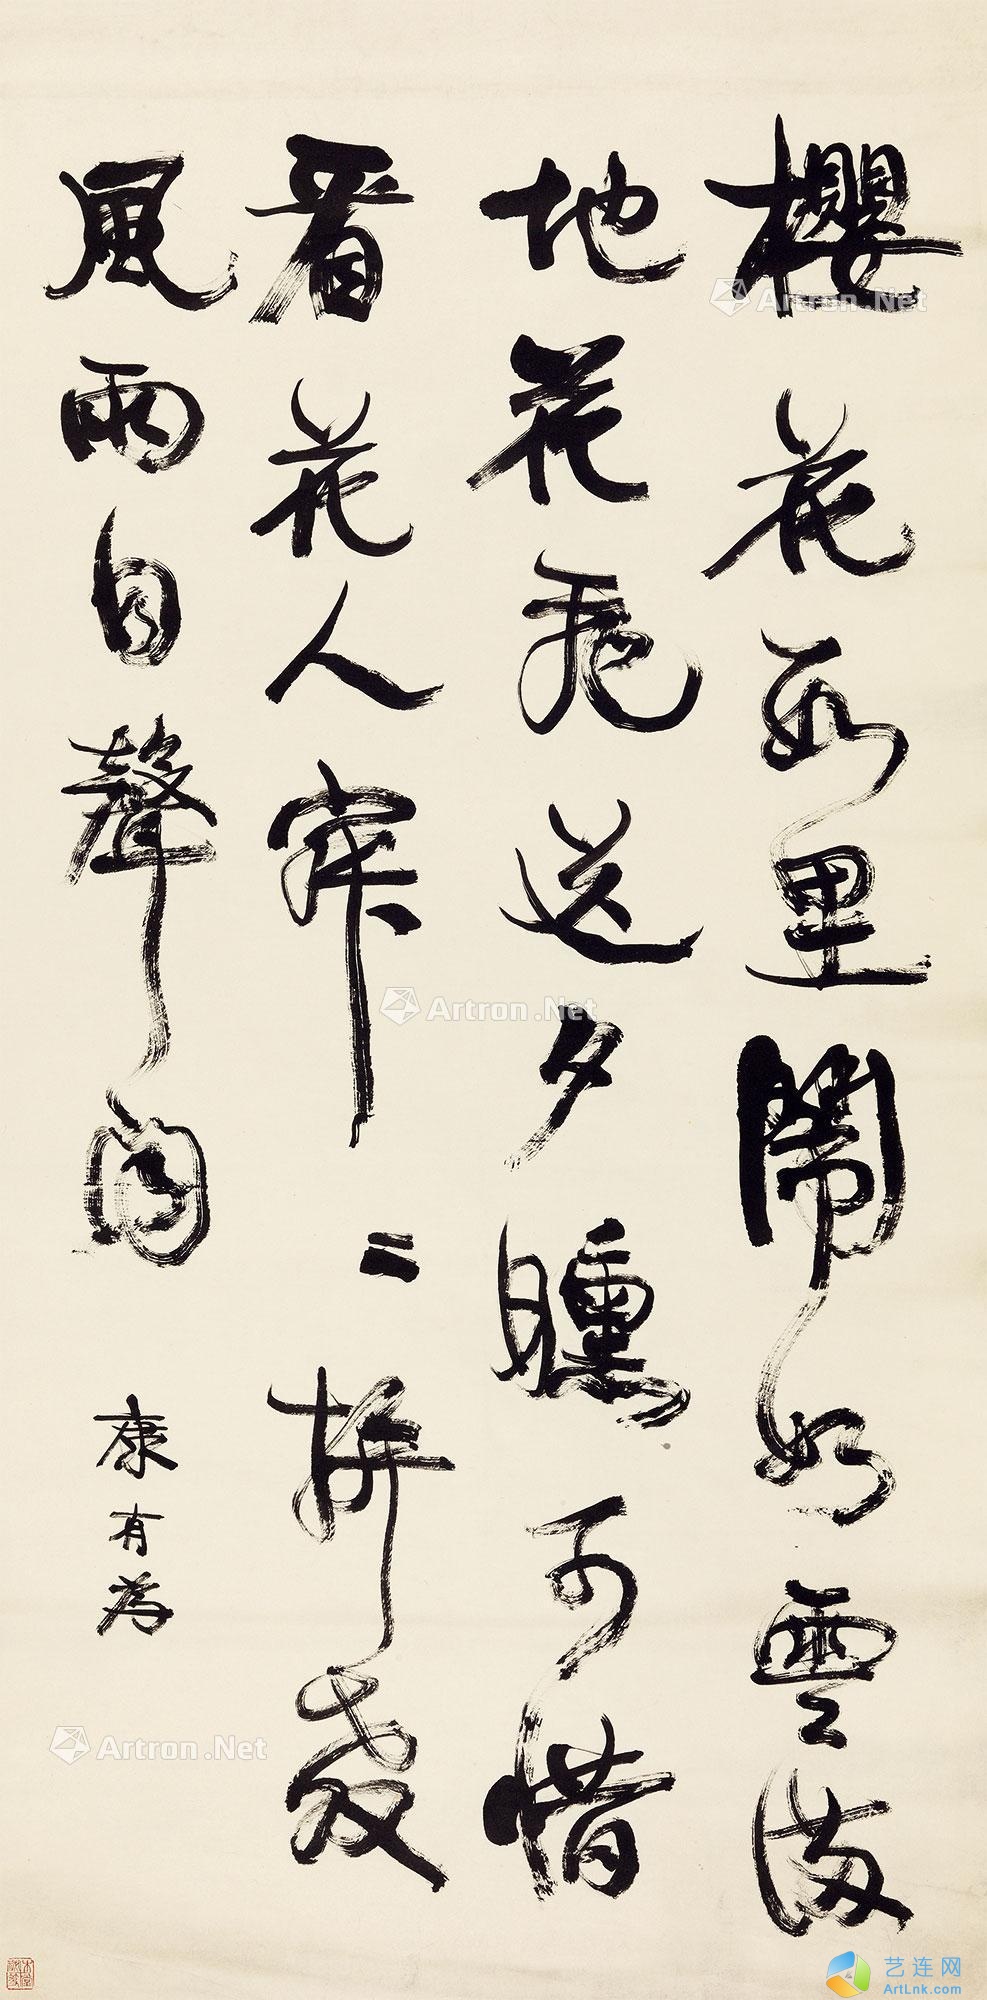 櫻花數里鬧如雲滿
地花送夕曛可惜
看花人寂〻拚教
風雨自聲聞
康有為
Artron.Net
Artron.Net
Artron.Net
艺连网
ArtLnk.com